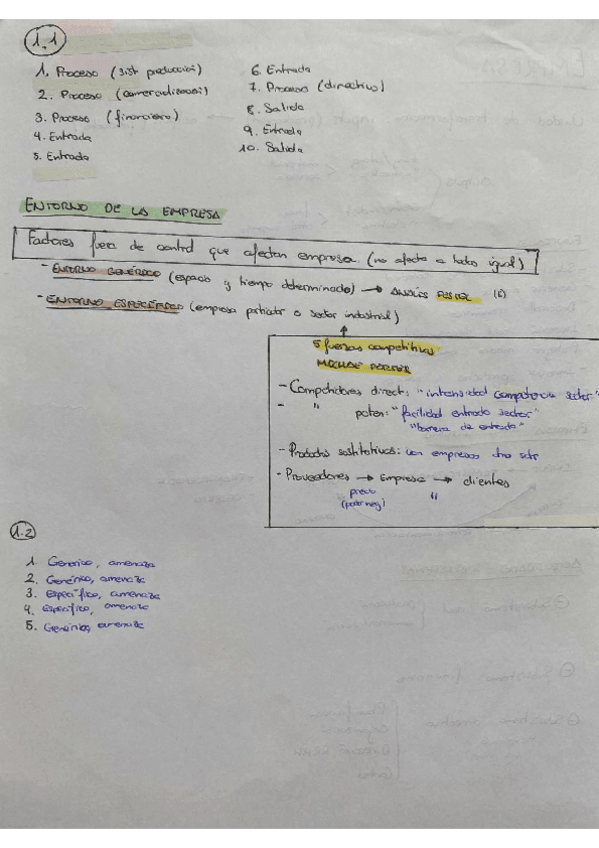 1.1
1. Proceso (sist producción)
2. Proceso (comercialización)
3. Proceso (financiero)
4. Entrada
5. Entrada
6. Entrada
7. Proceso (directivo)
8. Salida
9. Entrada
10. Salida
ENTORNO DE LA EMPRESA
Factores fuera de control que afectan empresa (no afecta a todos igual)
- ENTORNO GENÉRICO (espacio y tiempo determinado) → ANÁLISIS PESTEL (E)
- ENTORNO ESPECÍFICO (empresa particular o sector industrial)
5 fuerzas competitivas
PORTER
- Competidores direct: "intensidad competencia sector"
- " poten: "facilidad entrada sector"
"barrera de entrada"
- Productos sustitutivos: con empresas otro sector
- Proveedores → Empresa → clientes
precio "
(poder neg)
1.2
1. Generico, amenaza
2. Genérico, amenaza
3. Específico, amenaza
4. Específico, amenaza
5. Genérico, amenaza